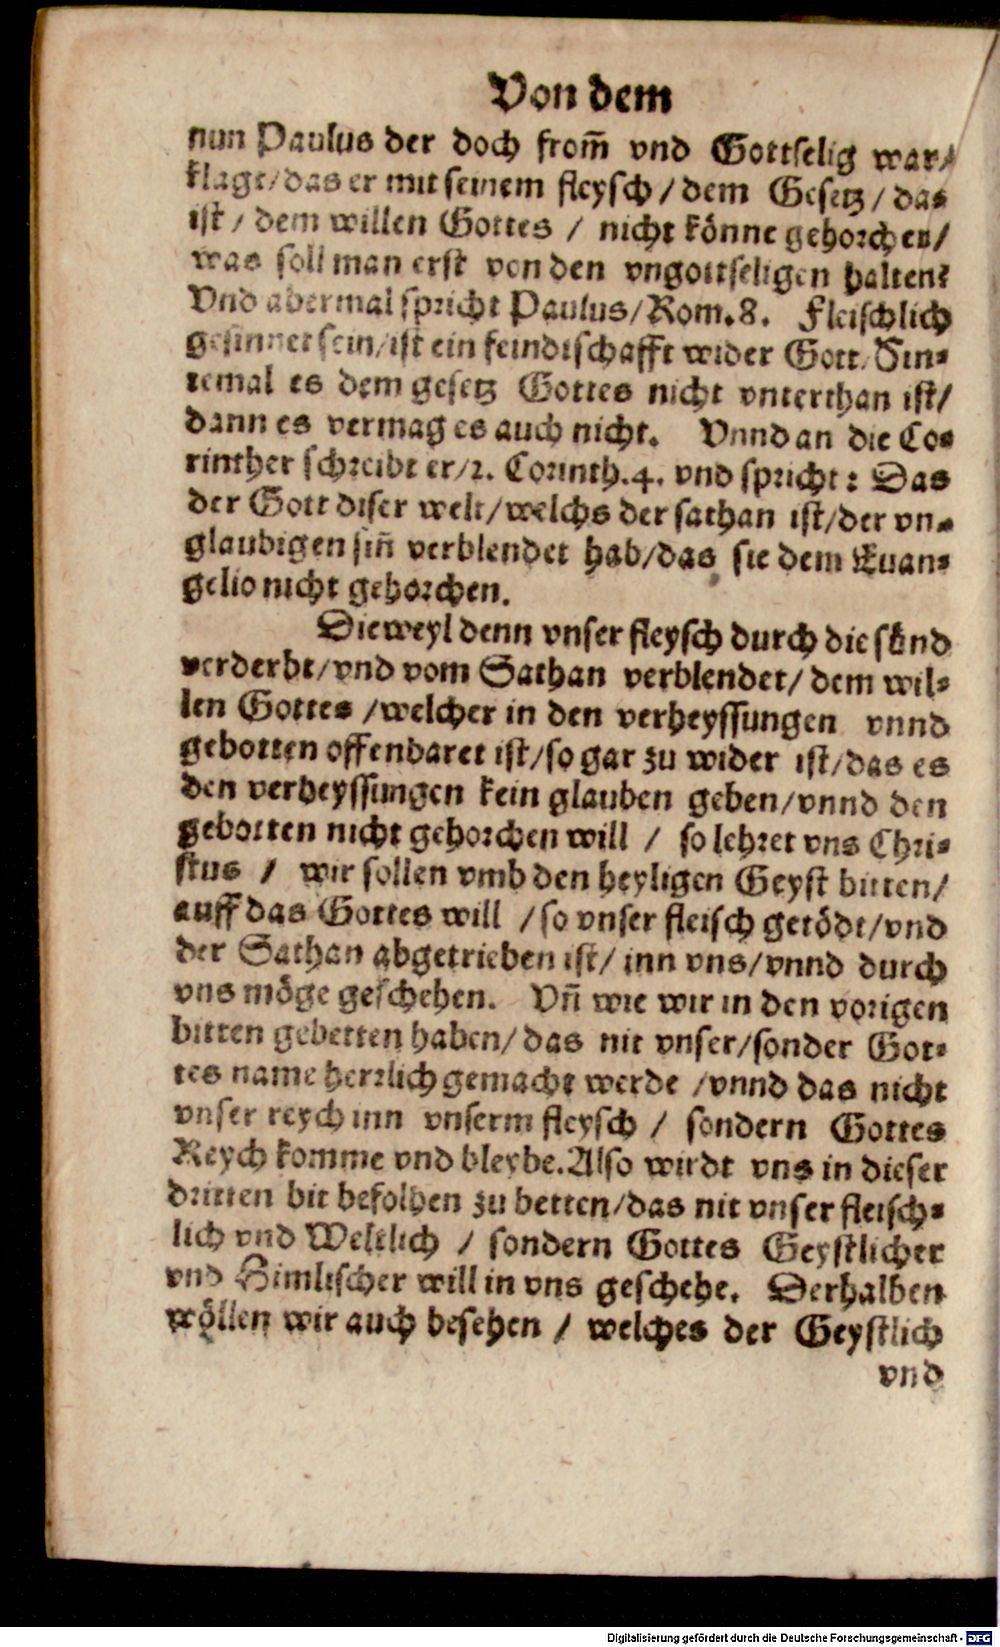 Von dem
nun Paulus der doch from̃ vnd Gottselig war/
klagt/das er mit seinem fleysch/dem Gesetz/das
ist/dem willen Gottes/nicht könne gehorchen/
was soll man erst von den vngottseligen halten?
Vnd abermal spricht Paulus/Rom.8. Fleischlich
gesinnet sein/ist ein feindtschafft wider Gott/Sin-
temal es dem gesetz Gottes nicht vnterthan ist/
dann es vermag es auch nicht. Vnnd an die Co-
rinther schreibt er/2. Corinth.4. vnd spricht: Das
der Gott diser welt/welchs der sathan ist/der vn-
glaubigen sin̄ verblendet hab/das sie dem Euan-
gelio nicht gehorchen.
Dieweyl denn vnser fleysch durch die sünd
verderbt/vnd vom Sathan verblendet/dem wil-
len Gottes/welcher in den verheyssungen vnnd
gebotten offenbaret ist/so gar zu wider ist/das es
den verheyssungen kein glauben geben/vnnd den
gebotten nicht gehorchen will/so lehret vns Chri-
stus/wir sollen vmb den heyligen Geyst bitten/
auff das Gottes will/so vnser fleisch getödt/vnd
der Sathan abgetrieben ist/inn vns/vnnd durch
vns möge geschehen. Vn̄ wie wir in den vorigen
bitten gebetten haben/das nit vnser/sonder Got-
tes name herrlich gemacht werde/vnnd das nicht
vnser reych inn vnserm fleysch/sondern Gottes
Reych komme vnd bleybe. Also wirdt vns in dieser
dritten bit befolhen zu betten/das nit vnser fleisch-
lich vnd Weltlich/sondern Gottes Geystlicher
vnd Himlischer will in vns geschehe. Derhalben
wöllen wir auch besehen/welches der Geystlich
vnd
Digitalisierung gefördert durch die Deutsche Forschungsgemeinschaft - DFG